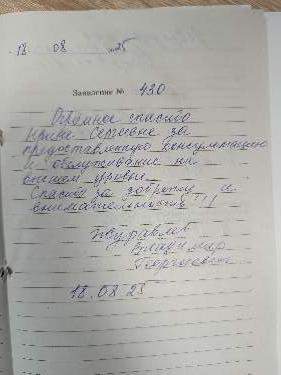 18 08 25
Заявление № 430
Огромное спасибо
Ирине Сергеевне за
предоставленную консультацию
и обслуживание на
высшем уровне.
Спасибо за заботу и
внимательность!!!
Журавлев
Владимир
Георгиевич
18.08.25